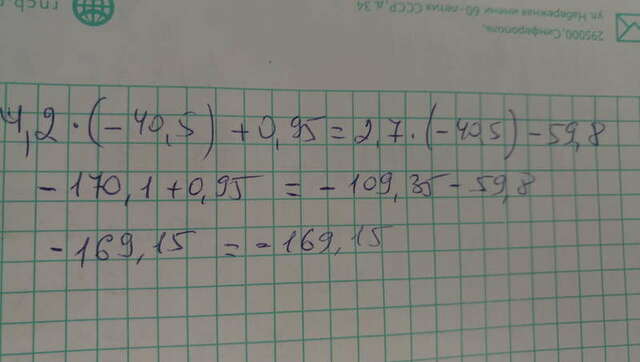 rncb
295000, Симферополь,
ул. Набережная имени 60-летия СССР, д.34
4,2 · (-40,5) + 0,95 = 2,7 · (-40,5) - 59,8
-170,1 + 0,95 = -109,35 - 59,8
-169,15 = -169,15